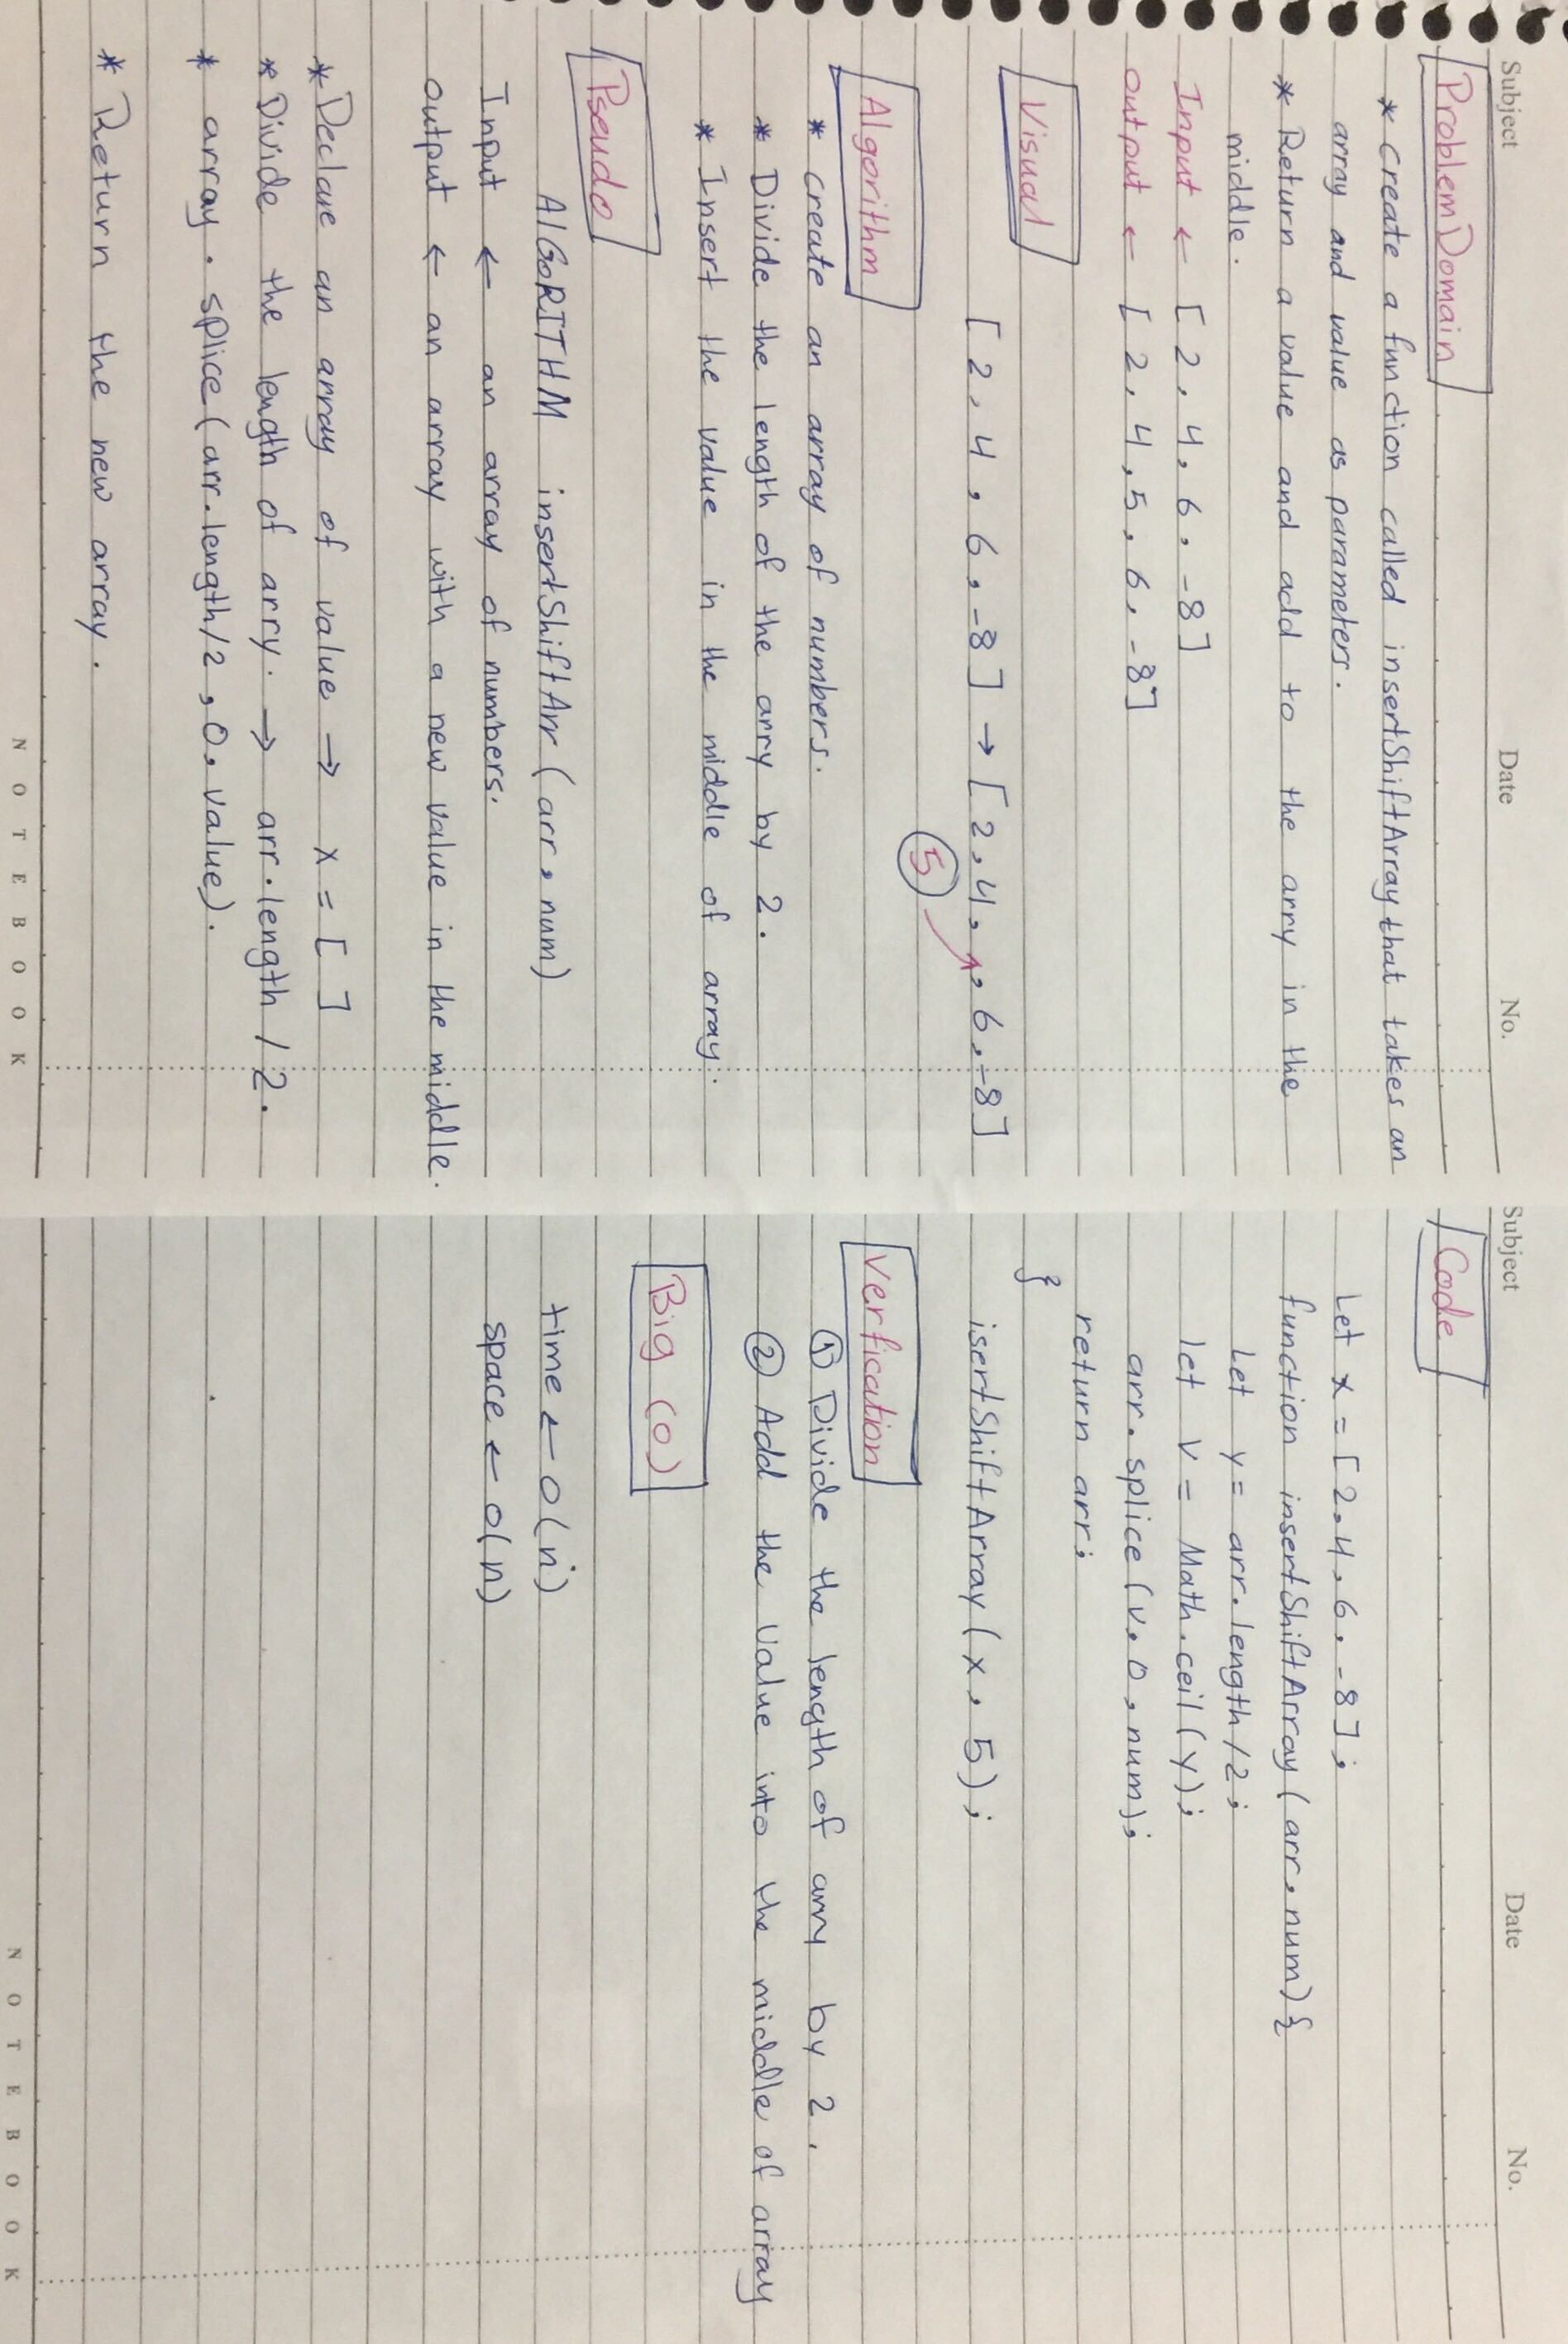 Subject Date No.
Problem Domain
* create a function called insertShiftArray that takes an
array and value as parameters.
* Return a value and add to the arry in the
middle.
Input ← [ 2, 4, 6, -8]
output ← [ 2, 4, 5, 6, -8]
Visual
[ 2, 4, 6, -8 ] → [ 2, 4, , 6, -8]
5
Algorithm
* create an array of numbers.
* Divide the length of the arry by 2.
* Insert the value in the middle of array.
Pseudo
AlGoRITHM insertShiftArr ( arr, num)
Input ← an array of numbers.
output ← an array with a new value in the middle.
* Declare an array of value → x = [ ]
* Divide the length of arry. → arr.length / 2.
* array . splice ( arr.length/2 , 0, value).
* Return the new array.
NOTEBOOK
Subject Date No.
Code
Let x = [ 2, 4, 6, -8 ] ;
function insertShiftArray ( arr, num) {
Let y = arr.length /2 ;
let v = Math.ceil (y) ;
arr. splice (v, 0, num);
return arr;
}
isertShiftArray ( x, 5) ;
Verfication
① Divide the length of arry by 2.
② Add the value into the middle of array
Big (O)
time ← O(n)
space ← O(n)
NOTEBOOK